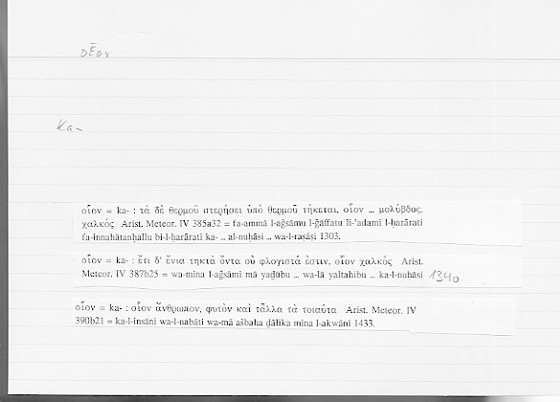 οἷον
Ka-
οἷον = ka- : τὰ δὲ θερμοῦ στερήσει ὑπὸ θερμοῦ τήκεται, οἷον .. μολύβδος,
χαλκός Arist. Meteor. IV 385a32 = fa-ammā l-aǧsāmu l-ǧāffatu li-ʿadami l-ḥarārati
fa-innahā tanḥallu bi-l-ḥarārati ka- .. al-nuḥāsi .. wa-l-raṣāṣi 1303.
οἷον = ka- : ἔτι δ' ἔνια τηκτὰ ὄντα οὐ φλογιστά ἐστιν, οἷον χαλκός Arist.
Meteor. IV 387b25 = wa-mina l-aǧsāmi mā yaḏūbu .. wa-lā yaltahibu .. ka-l-nuḥāsi 1340
οἷον = ka- : οἷον ἄνθρωπον, φυτὸν καὶ τἆλλα τὰ τοιαῦτα Arist. Meteor. IV
390b21 = ka-l-insāni wa-l-nabāti wa-mā ašbaha ḏālika mina l-akwāni 1433.